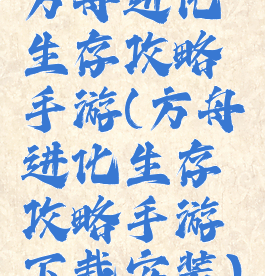 方舟进化
生存攻略
手游(方舟
进化生存
攻略手游
下载安装)